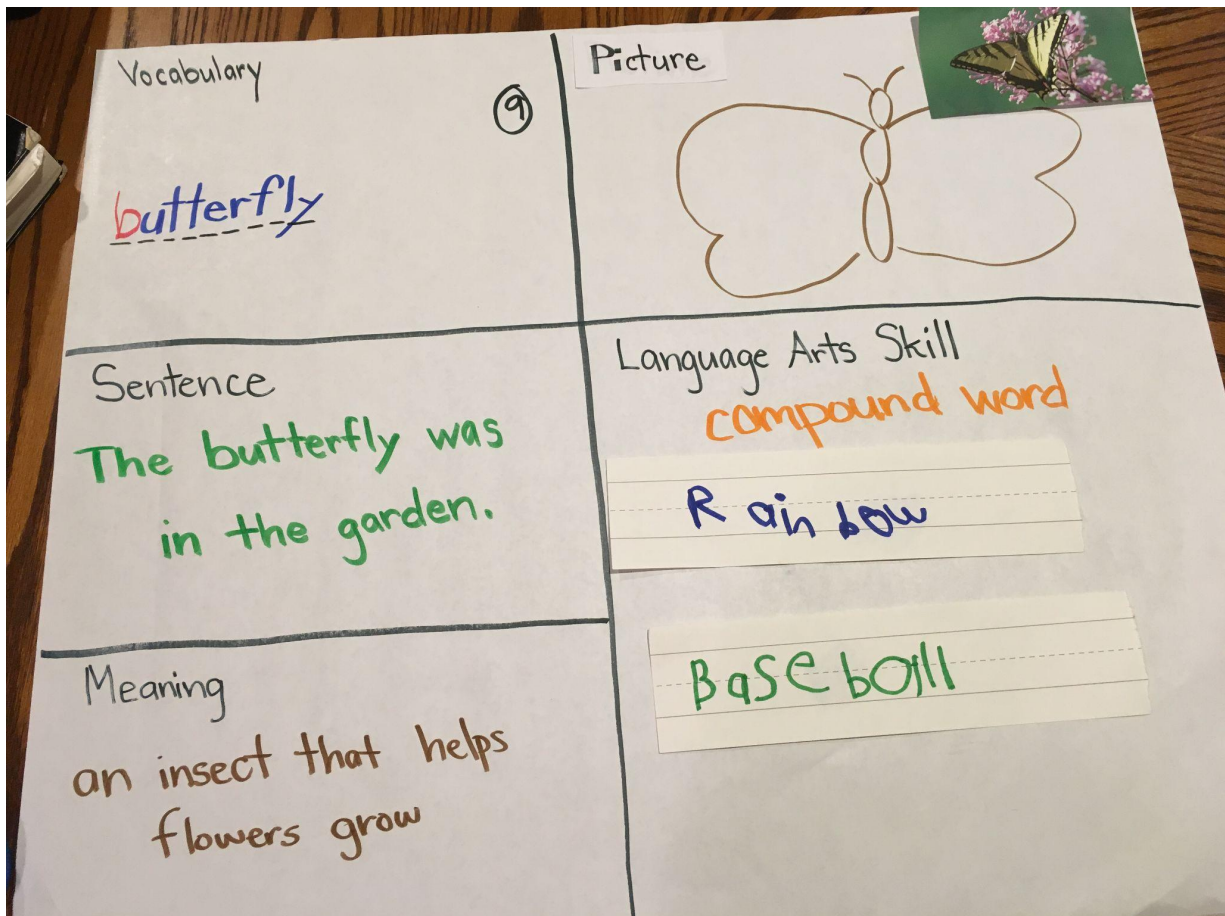 Vocabulary
9
butterfly
Picture
Sentence
The butterfly was
in the garden.
Meaning
an insect that helps
flowers grow
Language Arts Skill
compound word
Rainbow
Baseball